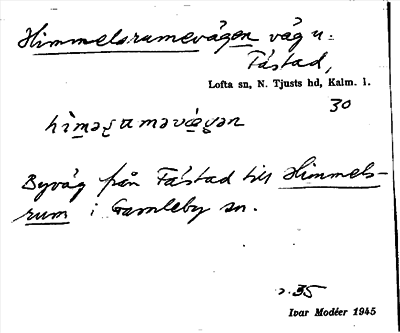 Himmelsrumevägen väg u.
Fästad,
Lofta sn, N. Tjusts hd, Kalm. l.
30
Byväg från Fästad till Himmels-
rum i Gamleby sn.
s. 35
Ivar Modéer 1945